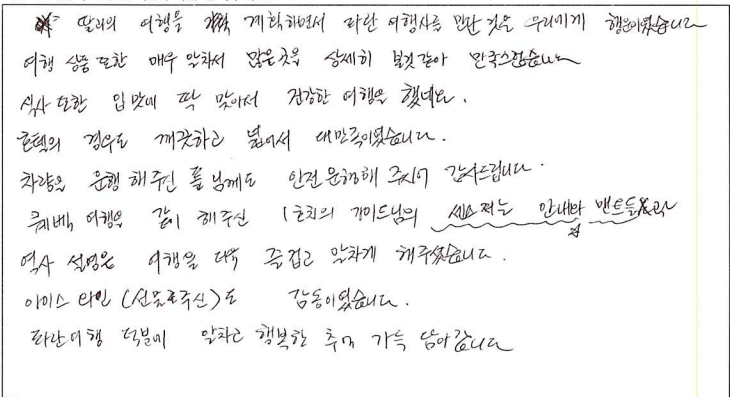 딸과의 여행을 계획하면서 파란 여행사를 만난 것은 우리에게 행운이었습니다
여행 상품 또한 매우 알차서 많은 곳을 상세히 본것 같아 만족스럽습니다
식사 또한 입맛에 딱 맞아서 건강한 여행을 했네요.
호텔의 경우도 깨끗하고 넓어서 대만족이였습니다.
차량을 운행 해주신 폴 님께도 안전 운행해 주시어 감사드립니다.
퀘벡 여행을 같이 해주신 가이드님의 센스있는 안내와 멘트들
역사 설명은 여행을 더욱 즐겁고 알차게 해주셨습니다.
아이스 와인 (선물로주신)도 감동이였습니다.
파란여행 덕분에 알차고 행복한 추억 가득 담아갑니다